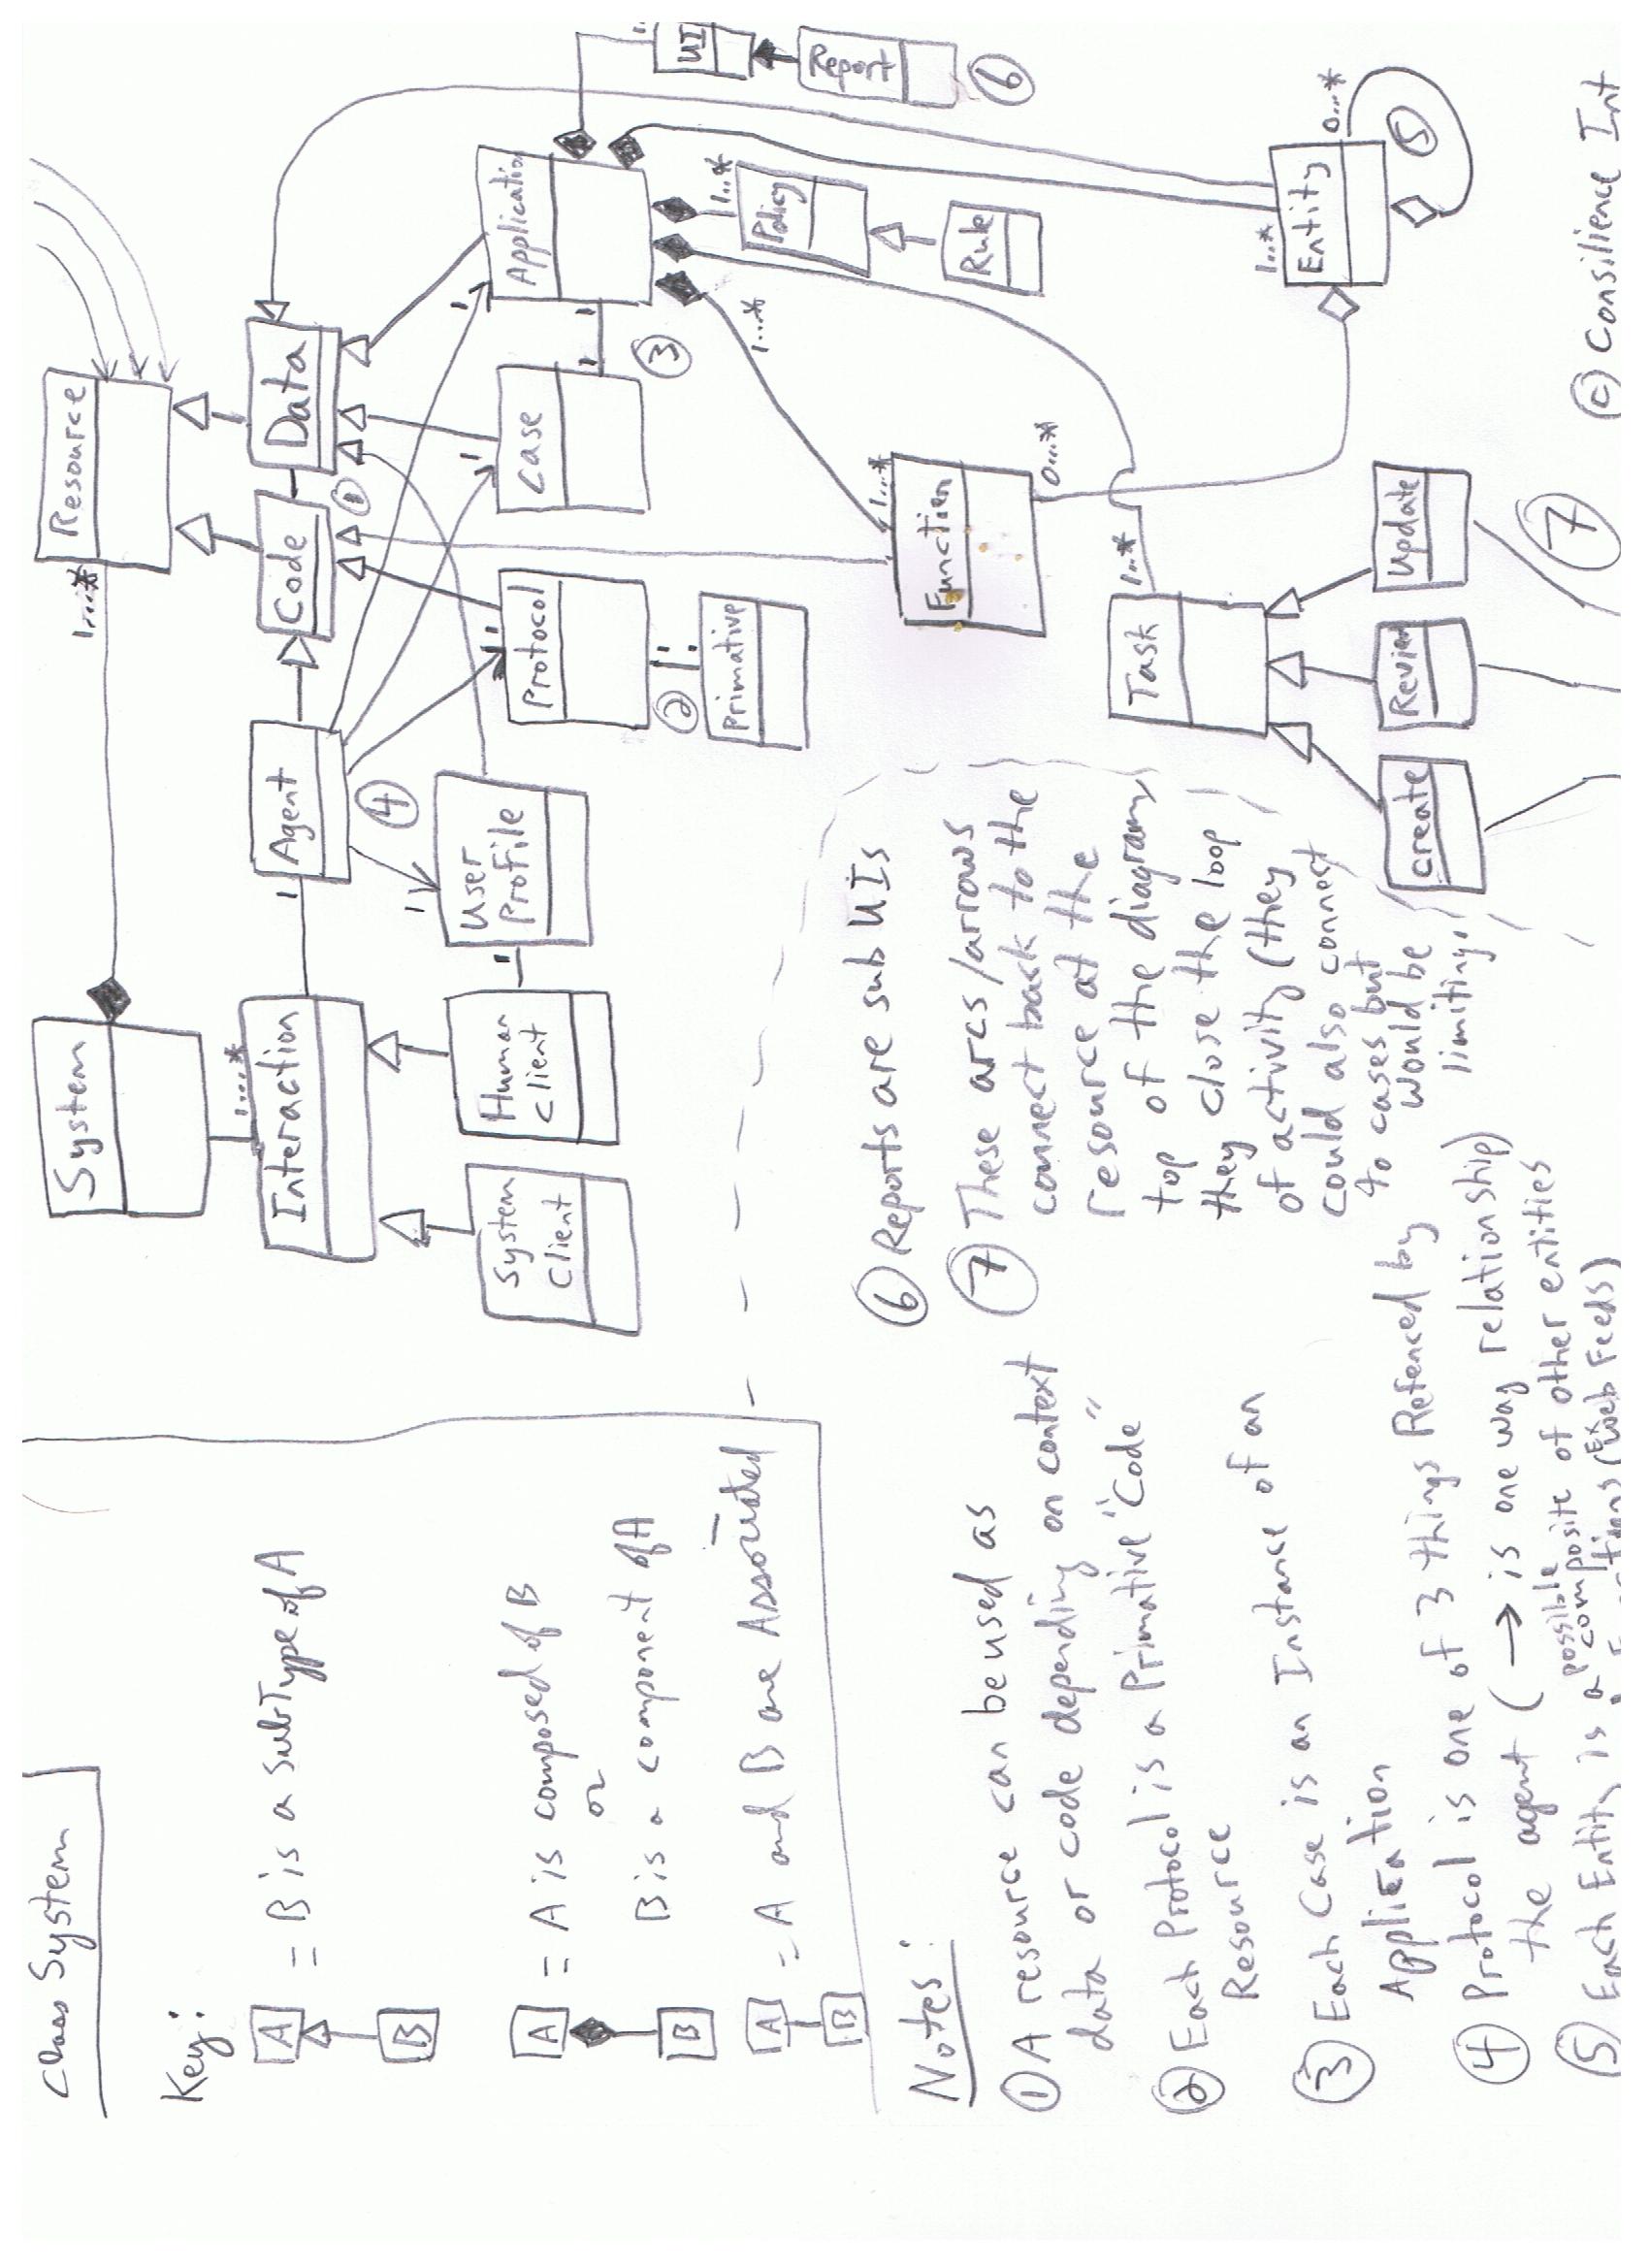 Class System
Key:
A
B
= B is a subType of A
A
B
= A is composed of B
or
B is a component of A
A
B
= A and B are Associated
Notes:
① A resource can be used as
data or code depending on context
② Each Protocol is a Primative "Code"
Resource
③ Each Case is an Instance of an
Application
④ Protocol is one of 3 things Refenced by
the agent ( → is one way relationship)
⑤ Each Entity is a possible composite of other entities
(Ex web Feeds)
⑥ Reports are sub UIs
⑦ These arcs/arrows
connect back to the
resource at the
top of the diagram,
they close the loop
of activity (they
could also connect
to cases but
would be
limiting.)
System
1...*
Resource
1...*
Interaction
1
Agent
Code
①
Data
System
Client
Human
Client
1
1
User
Profile
④
1
Protocol
1
Case
1
1
1
Application
③
②
1
1
Primative
UI
Report
⑥
1...*
Policy
Rule
1...*
1...*
Function
0...*
1...*
Entity
0...*
⑤
1...*
Task
Create
Review
Update
⑦
© Consilience Int